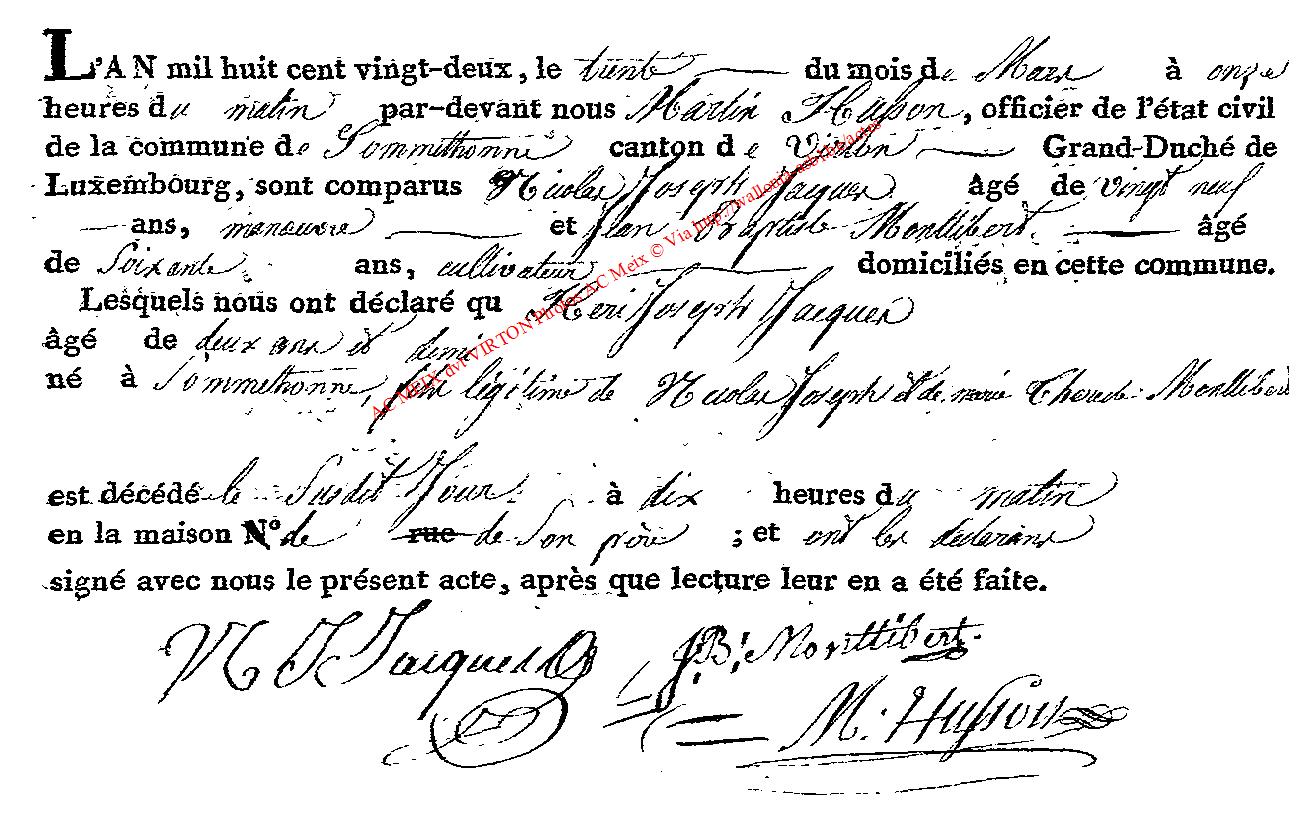 L'AN mil huit cent vingt-deux, le trente du mois de Mars à onze
heures du matin par-devant nous Martin Husson, officier de l'état civil
de la commune de Sommethonne canton de Virton Grand-Duché de
Luxembourg, sont comparus Nicolas Joseph Jacques âgé de vingt neuf
ans, manœuvre et Jean Baptiste Montlibert âgé
de Soixante ans, cultivateur domiciliés en cette commune.
Lesquels nous ont déclaré qu Joseph Jacques
âgé de deux ans et demi
né à Sommethonne, fils légitime de Nicolas Joseph et de marie Montlibert
est décédé le Susdit Jour à dix heures du matin
en la maison N° de rue de Son père ; et ont les déclarans
signé avec nous le présent acte, après que lecture leur en a été faite.
N J Jacques J. B. Montlibert
M. Husson
AC MEIX dvt VIRTON Photos AC Meix © Via